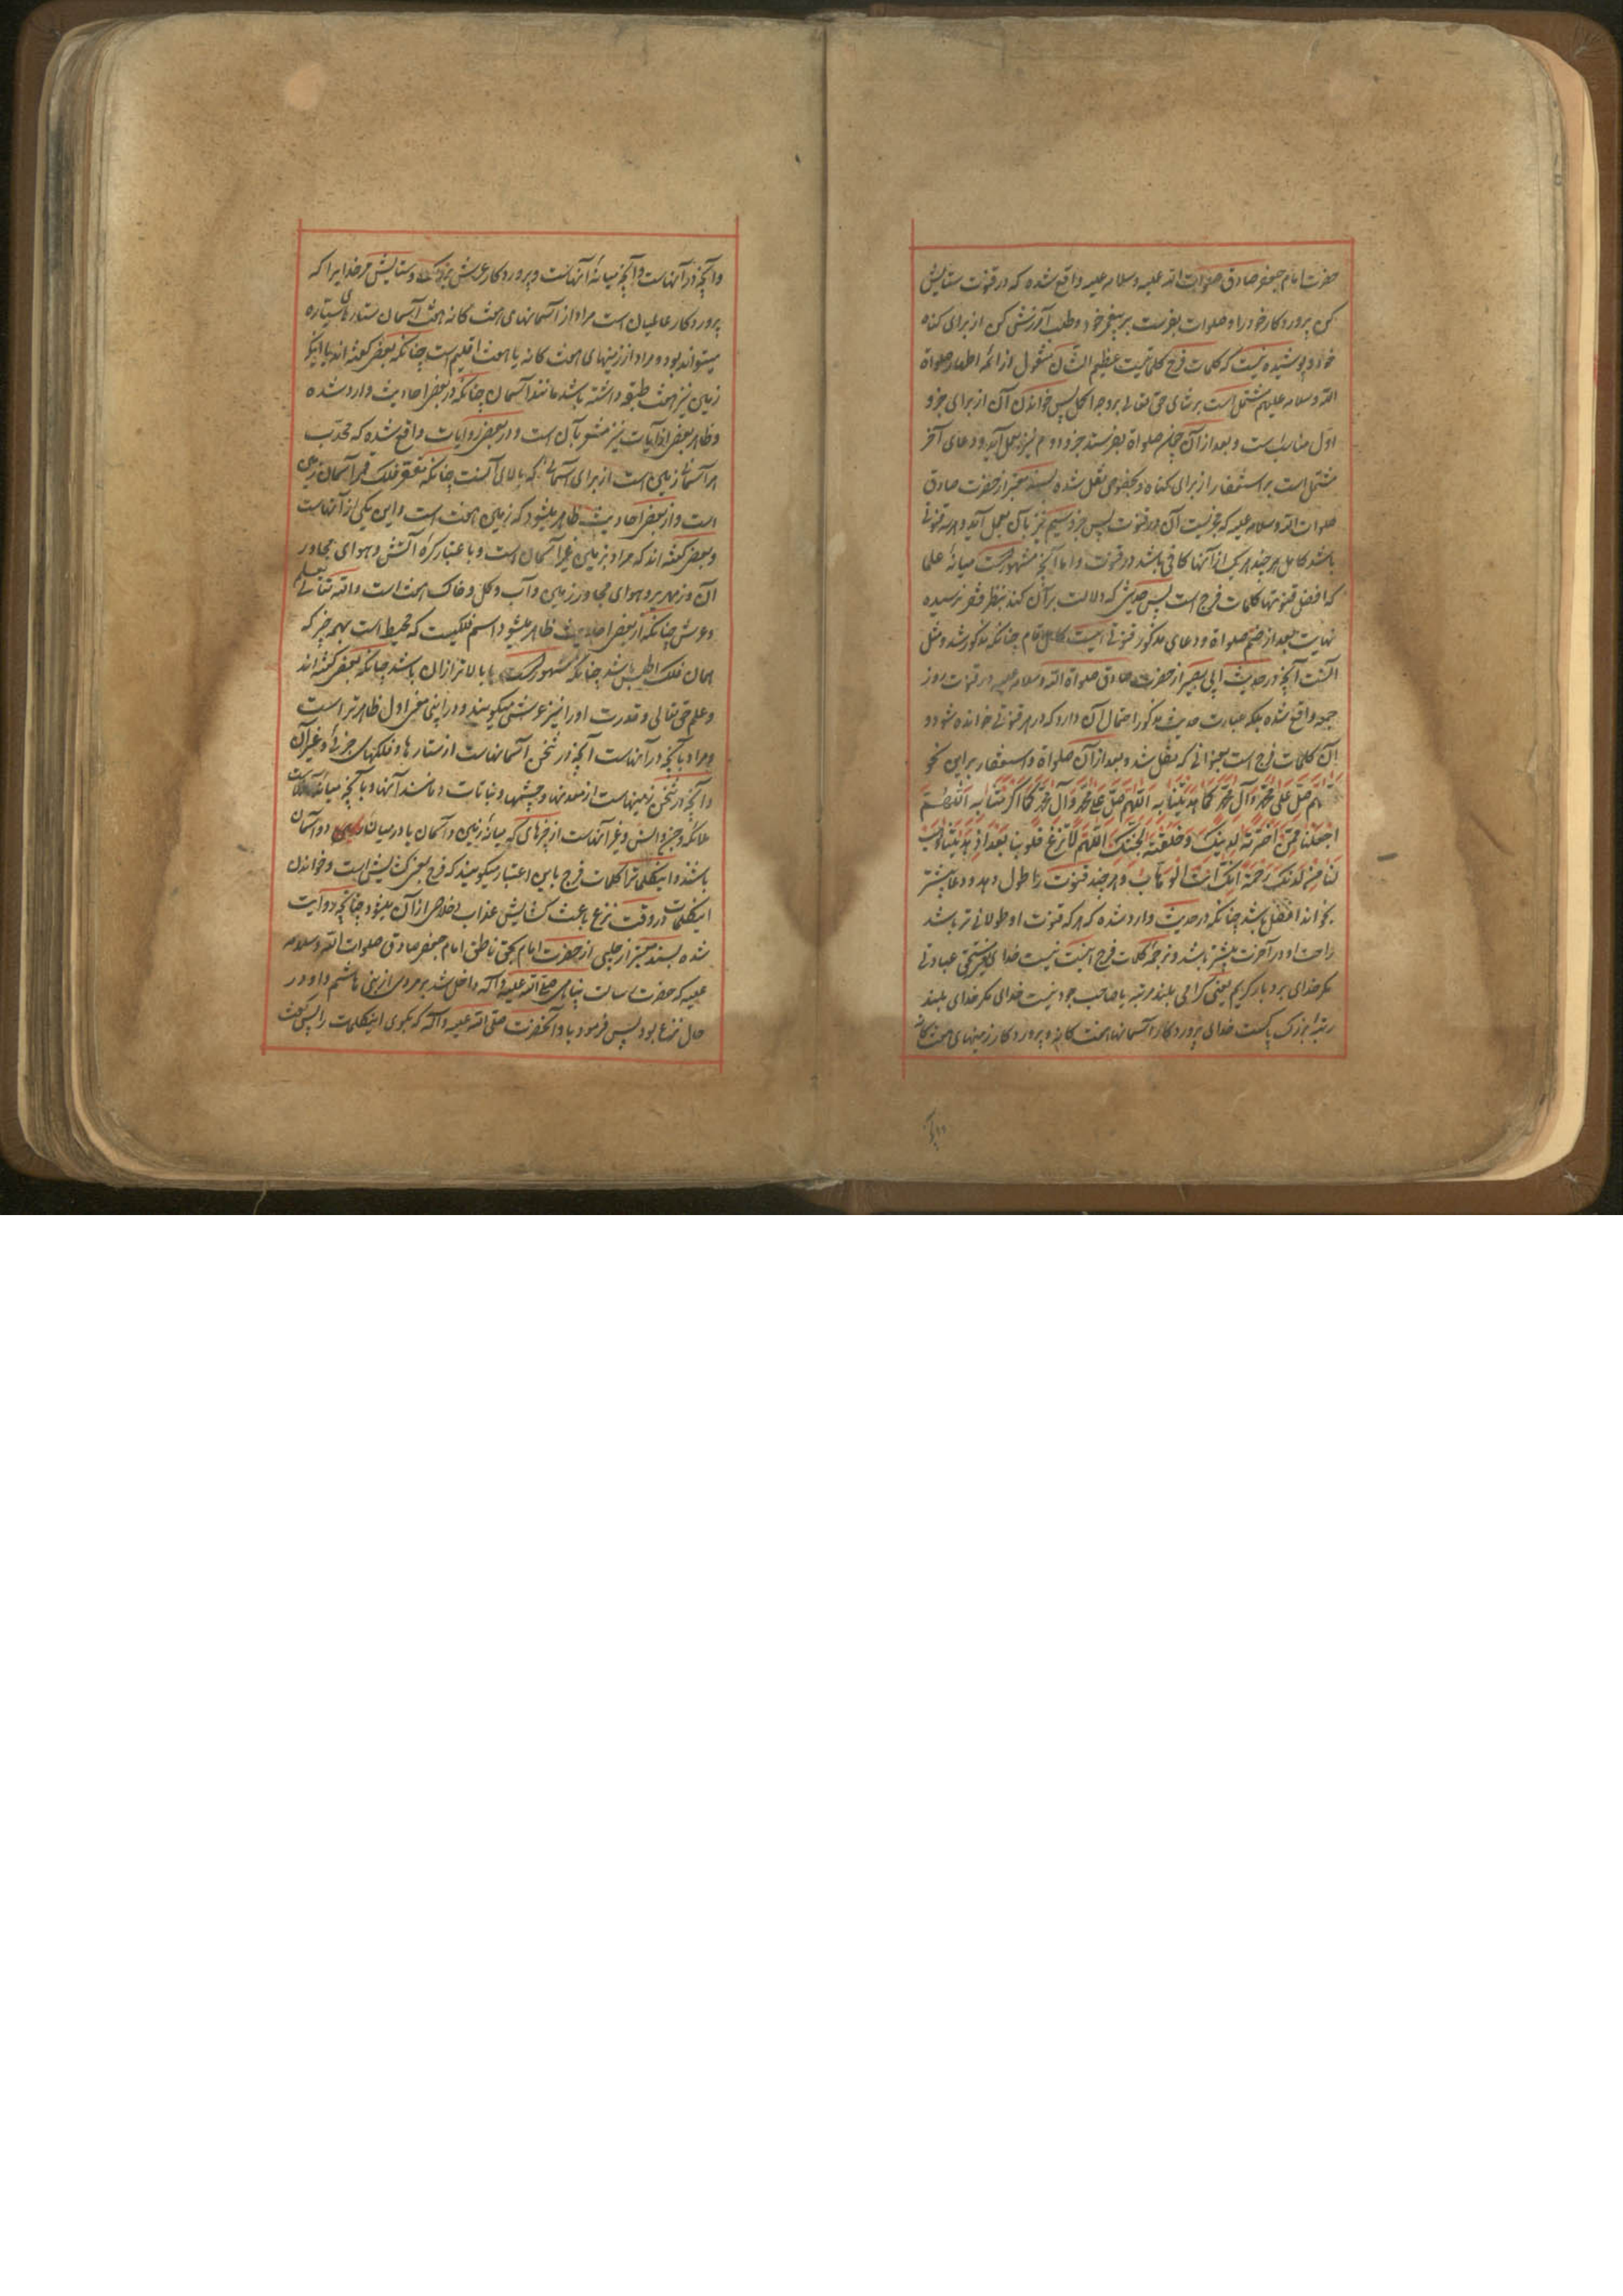 حضرت امام جعفر صادق صلوات الله علیه و سلامه علیه واقع شده که در قنوت ستایش
کن پروردکار خود را و صلوات بفرست بر پیغمبر خود و طلب آمرزش کن از برای کناه
خود و پوشیده نیست که کلمات فرج کلماتیست عظیم الشان منقول از ائمه اطهار صلواة
الله و سلامه علیهم مشتمل است بر ثنای حق تعالی بر وجه اکمل پس خواندن آن از برای جزو
اول مناسب است و بعد از آن چون صلواة بفرستد جزو دوم نیز بعمل آید و دعای آخر
مشتمل است بر استغفار از برای کناه و بخصوص نقل شده بسند معتبر از حضرت صادق
صلوات الله و سلامه علیه که مجزیست آن در قنوت پس جزو سیم نیز بآن بعمل آید و هر سه قنوتی
باشد کامل هر چند هر یک از آنها کافی باشد در قنوت و اما آنچه مشهور است میانه علما
که افضل قنوتها کلمات فرج است پس حدیثی که دلالت بر آن کند بنظر فقیر نرسیده
نهایت بعد از ضم صلواة و دعای مذکور قنوتی است کامل تمام چنانکه مذکور شد و مثل
آنست آنچه در حدیث ابی بصیر از حضرت صادق صلواة الله و سلامه علیه در قنوت روز
جمعه واقع شده بلکه عبارت حدیث مذکور احتمال آن دارد که در هر قنوتی خوانده شود و
آن کلمات فرج است بعنوانی که نقل شد و بعد از آن صلواة و استغفار براین نحو
اللهم صل علی محمد وآل محمد کما هدیتنا به اللهم صل علی محمد وآل محمد کما اکرمتنا به اللهم
اجعلنا ممن اخترته لدینک و خلقته لجنتک اللهم لا تزغ قلوبنا بعد اذ هدیتنا و هب
لنا من لدنک رحمة انک انت الوهاب و هر چند قنوت را طول دهد و دعا بیشتر
بخواند افضل باشد چنانکه در حدیث وارد شده که هر که قنوت او طولانی تر باشد
راحت او در آخرت بیشتر باشد و ترجمه کلمات فرج اینست نیست خدای که مستحق عبادتی
مکر خدای بردبار کریم یعنی کرامی بلند مرتبه یا صاحب جود نیست خدای مکر خدای بلند
رتبه بزرک پاکست خدای پروردکار آسمانهای هفت کانه و پروردکار زمینهای هفت کانه
و آنچه
و آنچه در آنهاست و آنچه میانه آنهاست و پروردکار عرش بزرک و ستایش مر خدایرا که
پروردکار عالمیان است مراد از آسمانهای هفت کانه هفت آسمان ستارهای سیاره
میتواند بود و مراد از زمینهای هفت کانه یا هفت اقلیم است چنانکه بعضی کفته اند یا اینکه
زمین نیز هفت طبقه داشته باشد مانند آسمان چنانکه در بعضی احادیث وارد شده
و ظاهر بعضی از آیات نیز مشعر بآن است و در بعضی روایات واقع شده که محدب
هر آسمانی زمین است از برای آسمانی که بالای آنست چنانکه مقعر فلک قمر آسمان زمین
است و از بعضی احادیث ظاهر میشود که زمین هفت است و این یکی از آنهاست
و بعضی کفته اند که مراد بزمین غیر آسمان است و باعتبار کره آتش و هوای مجاور
آن و زمهریر و هوای مجاور زمین و آب و کل و خاک هفت است والله تعالی یعلم
و عرش چنانکه از بعضی احادیث ظاهر میشود اسم فلکیست که محیط است بهمه چیز که
همان فلک اطلس باشد چنانکه مشهور است یا بالاتر از آن باشد چنانکه بعضی کفته اند
و علم حق تعالی و قدرت او را نیز عرش میکویند و در اینجا معنی اول ظاهرتر است
و مراد بآنچه در آنهاست آنچه در ثخن آسمانهاست از ستارها و فلکهای جزئی و غیر آن
و آنچه در ثخن زمینهاست از معدنها و چشمها و نباتات و مانند آنها و بآنچه میانه آنهاست
ملائکه و جن و انس و غیر آنهاست از چیزهای که میانه زمین و آسمان یا در میان دو آسمان
باشند و اینکلمات را کلمات فرج باین اعتبار میکویند که فرج بمعنی کشایش است و خواندن
اینکلمات در وقت نزع باعث کشایش عذاب و خلاص از آن میشود چنانچه روایت
شده بسند معتبر از حلبی از حضرت امام بحق ناطق امام جعفر صادق صلوات الله و سلامه
علیه که حضرت رسالت پناهی صلی الله علیه و آله داخل شد بر مردی از بنی هاشم و او در
حال نزع بود پس فرمود باو آنحضرت صلی الله علیه و آله که بکوی اینکلمات را پس کفت